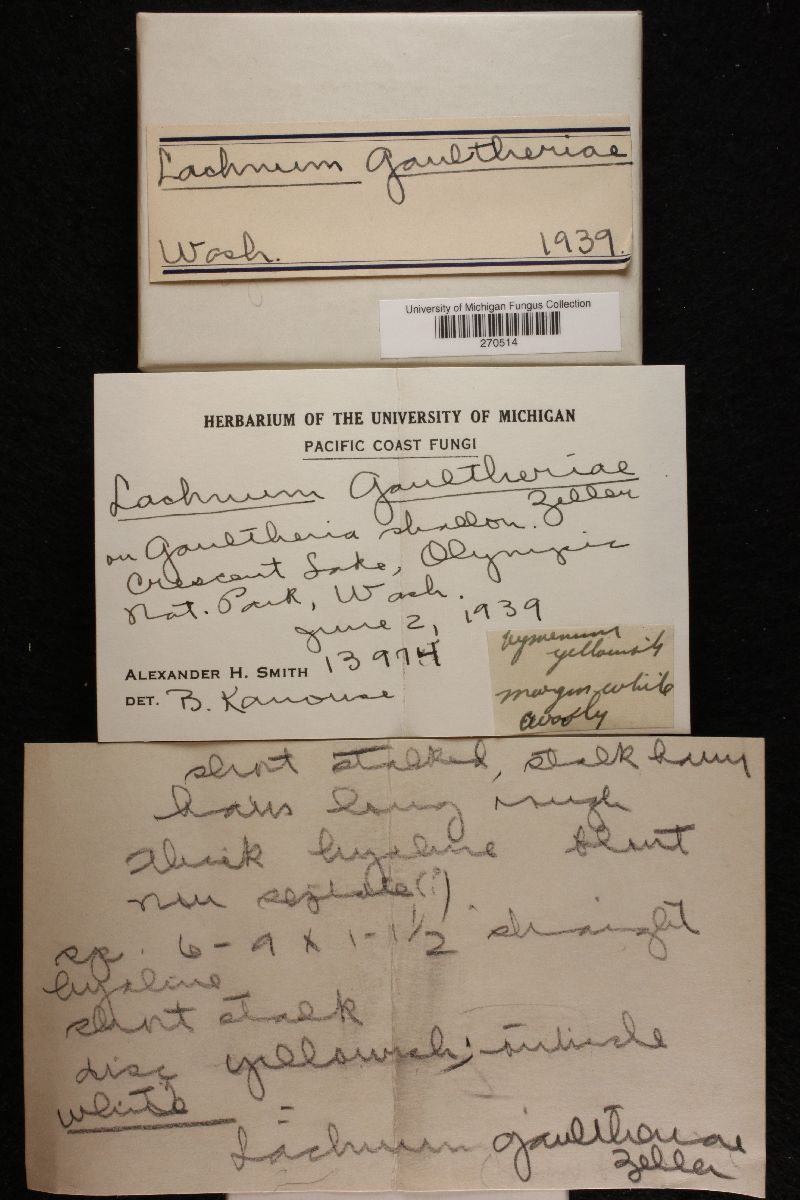 Lachnum Gaultheriae
Wash. 1939.
University of Michigan Fungus Collection
270514
HERBARIUM OF THE UNIVERSITY OF MICHIGAN
PACIFIC COAST FUNGI
Lachnum Gaultheriae
Zeller
on Gaultheria shallon.
Crescent Lake, Olympic
Nat. Park, Wash.
June 2, 1939
ALEXANDER H. SMITH 13974
DET. B. Kanouse
hymenium
yellowish
margin white
wooly
short stalked, stalk hairy
hairs long rough
thick hyaline blunt
non septate(?)
sp. 6-9 x 1-1 1/2 straight
hyaline
short stalk
disc yellowish; outside
white =
Lachnum gaultheriae
Zeller